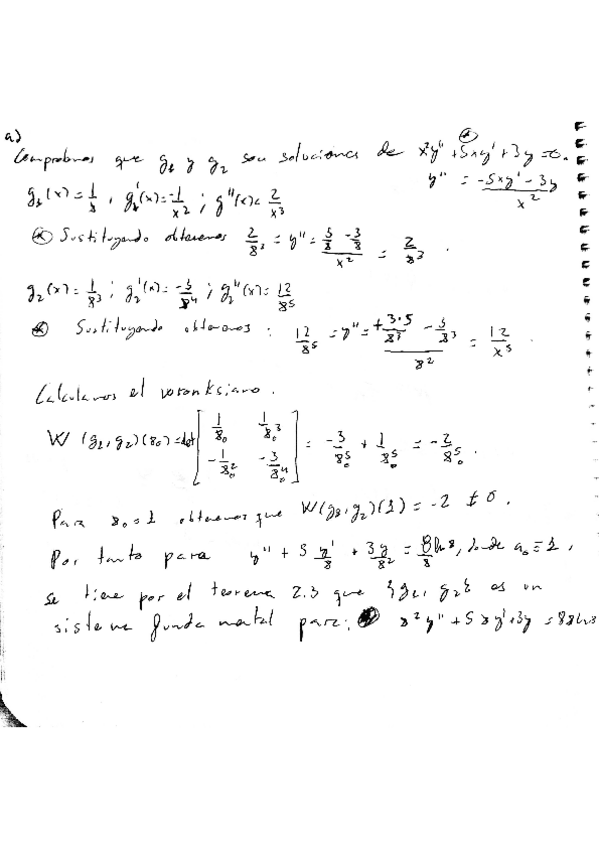 a)
Comprobamos que g₁ y g₂ son soluciones de x²y'' + 5xy' + 3y = 0.
g₁(x) = 1/x , g₁'(x) = -1/x² ; g''(x) = 2/x³
y'' = (-5xy' - 3y)/x²
(*) Sustituyendo obtenemos 2/x³ = y'' = (5/x - 3/x)/x² = 2/x³ .
g₂(x) = 1/x³ ; g₂'(x) = -3/x⁴ ; g₂''(x) = 12/x⁵
(*) Sustituyendo obtenemos : 12/x⁵ = y'' = (+3·5/x³ - 3/x³)/x² = 12/x⁵ .
Calculamos el wronksiano .
W (g₁, g₂)(x₀) = det [ 1/x₀ 1/x₀³ ; -1/x₀² -3/x₀⁴ ] = -3/x₀⁵ + 1/x₀⁵ = -2/x₀⁵ .
Para x₀ = 1 obtenemos que W(g₁, g₂)(1) = -2 ≠ 0 .
Por tanto para y'' + 5 y'/x + 3y/x² = 8 ln x/x , donde a₀ ≡ 1 ,
se tiene por el teorema 2.3 que {g₁, g₂} es un
sistema fundamental para: x²y'' + 5xy' + 3y = 8x ln x